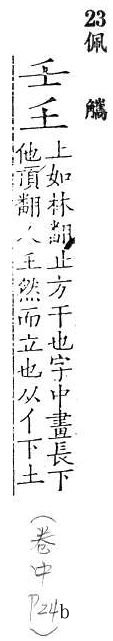 23
佩觿
壬𡈼 上如林翻北方干也字中畫長下
他頂翻人𡈼然而立也从亻下土
(卷中 P24b)